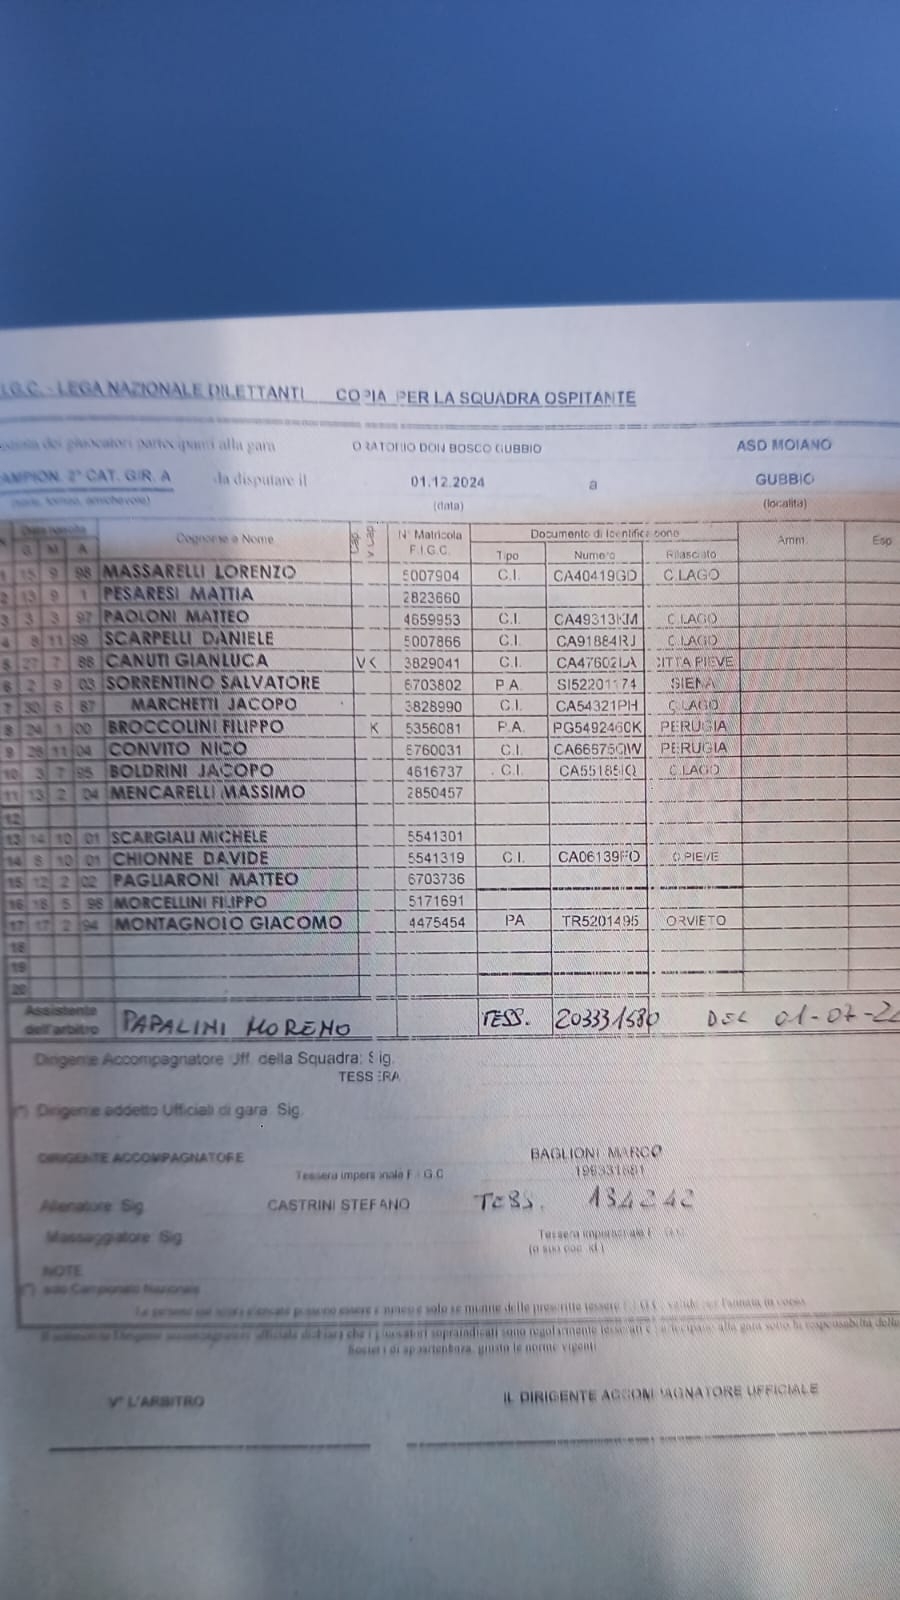 I.G.C. - LEGA NAZIONALE DILETTANTI COPIA PER LA SQUADRA OSPITANTE
dei giuocatori partecipanti alla gara ORATORIO DON BOSCO GUBBIO ASD MOIANO
AMPION. 2° CAT. GIR. A da disputare il 01.12.2024 a GUBBIO
(data) (località)
G. M A Cognome e Nome Cap. V Cap. N° Matricola F.I.G.C. Documento di identificazione Amm. Esp
Tipo Numero Rilasciato
1 15 9 98 MASSARELLI LORENZO 5007904 C.I. CA40419GD C.LAGO
2 13 9 1 PESARESI MATTIA 2823660
3 3 3 97 PAOLONI MATTEO 4659953 C.I. CA49313KM C.LAGO
4 8 11 99 SCARPELLI DANIELE 5007866 C.I. CA91884RJ C.LAGO
5 27 7 88 CANUTI GIANLUCA VK 3829041 C.I. CA47602LA CITTA PIEVE
6 2 9 03 SORRENTINO SALVATORE 6703802 P.A. SI52201174 SIENA
7 30 6 87 MARCHETTI JACOPO 3828990 C.I. CA54321PH C.LAGO
8 24 00 BROCCOLINI FILIPPO K 5356081 P.A. PG5492460K PERUGIA
9 28 11 04 CONVITO NICO 6760031 C.I. CA66675QW PERUGIA
10 3 7 95 BOLDRINI JACOPO 4616737 C.I. CA55185IQ C.LAGO
11 13 2 04 MENCARELLI MASSIMO 2850457
12
13 14 10 01 SCARGIALI MICHELE 5541301
14 8 10 01 CHIONNE DAVIDE 5541319 C.I. CA06139FD C.PIEVE
15 12 2 02 PAGLIARONI MATTEO 6703736
16 18 5 98 MORCELLINI FILIPPO 5171691
17 17 2 94 MONTAGNOLO GIACOMO 4475454 PA TR5201495 ORVIETO
18
19
20
Assistente dell'arbitro PAPALINI MORENO TESS. 203331580 DEL 01-07-2
Dirigente Accompagnatore Uff. della Squadra: Sig.
TESSERA
(*) Dirigente addetto Ufficiali di gara Sig.
DIRIGENTE ACCOMPAGNATORE BAGLIONI MARCO
Tessera impersonale F.I.G.C 198331681
Allenatore Sig CASTRINI STEFANO TESS. 134242
Massaggiatore Sig Tessera impersonale F.I.G.C.
(o suo doc. id.)
NOTE
(*) solo Campionato Nazionale
Le persone sopra elencate possono essere ammesse solo se munite delle prescritte tessere F.I.G.C. valide per l'annata in corso
Il sottoscritto Dirigente accompagnatore ufficiale dichiara che i giuocatori sopraindicati sono regolarmente tesserati e partecipano alla gara sotto la responsabilità della
Società di appartenenza, giusto le norme vigenti
V° L'ARBITRO IL DIRIGENTE ACCOMPAGNATORE UFFICIALE